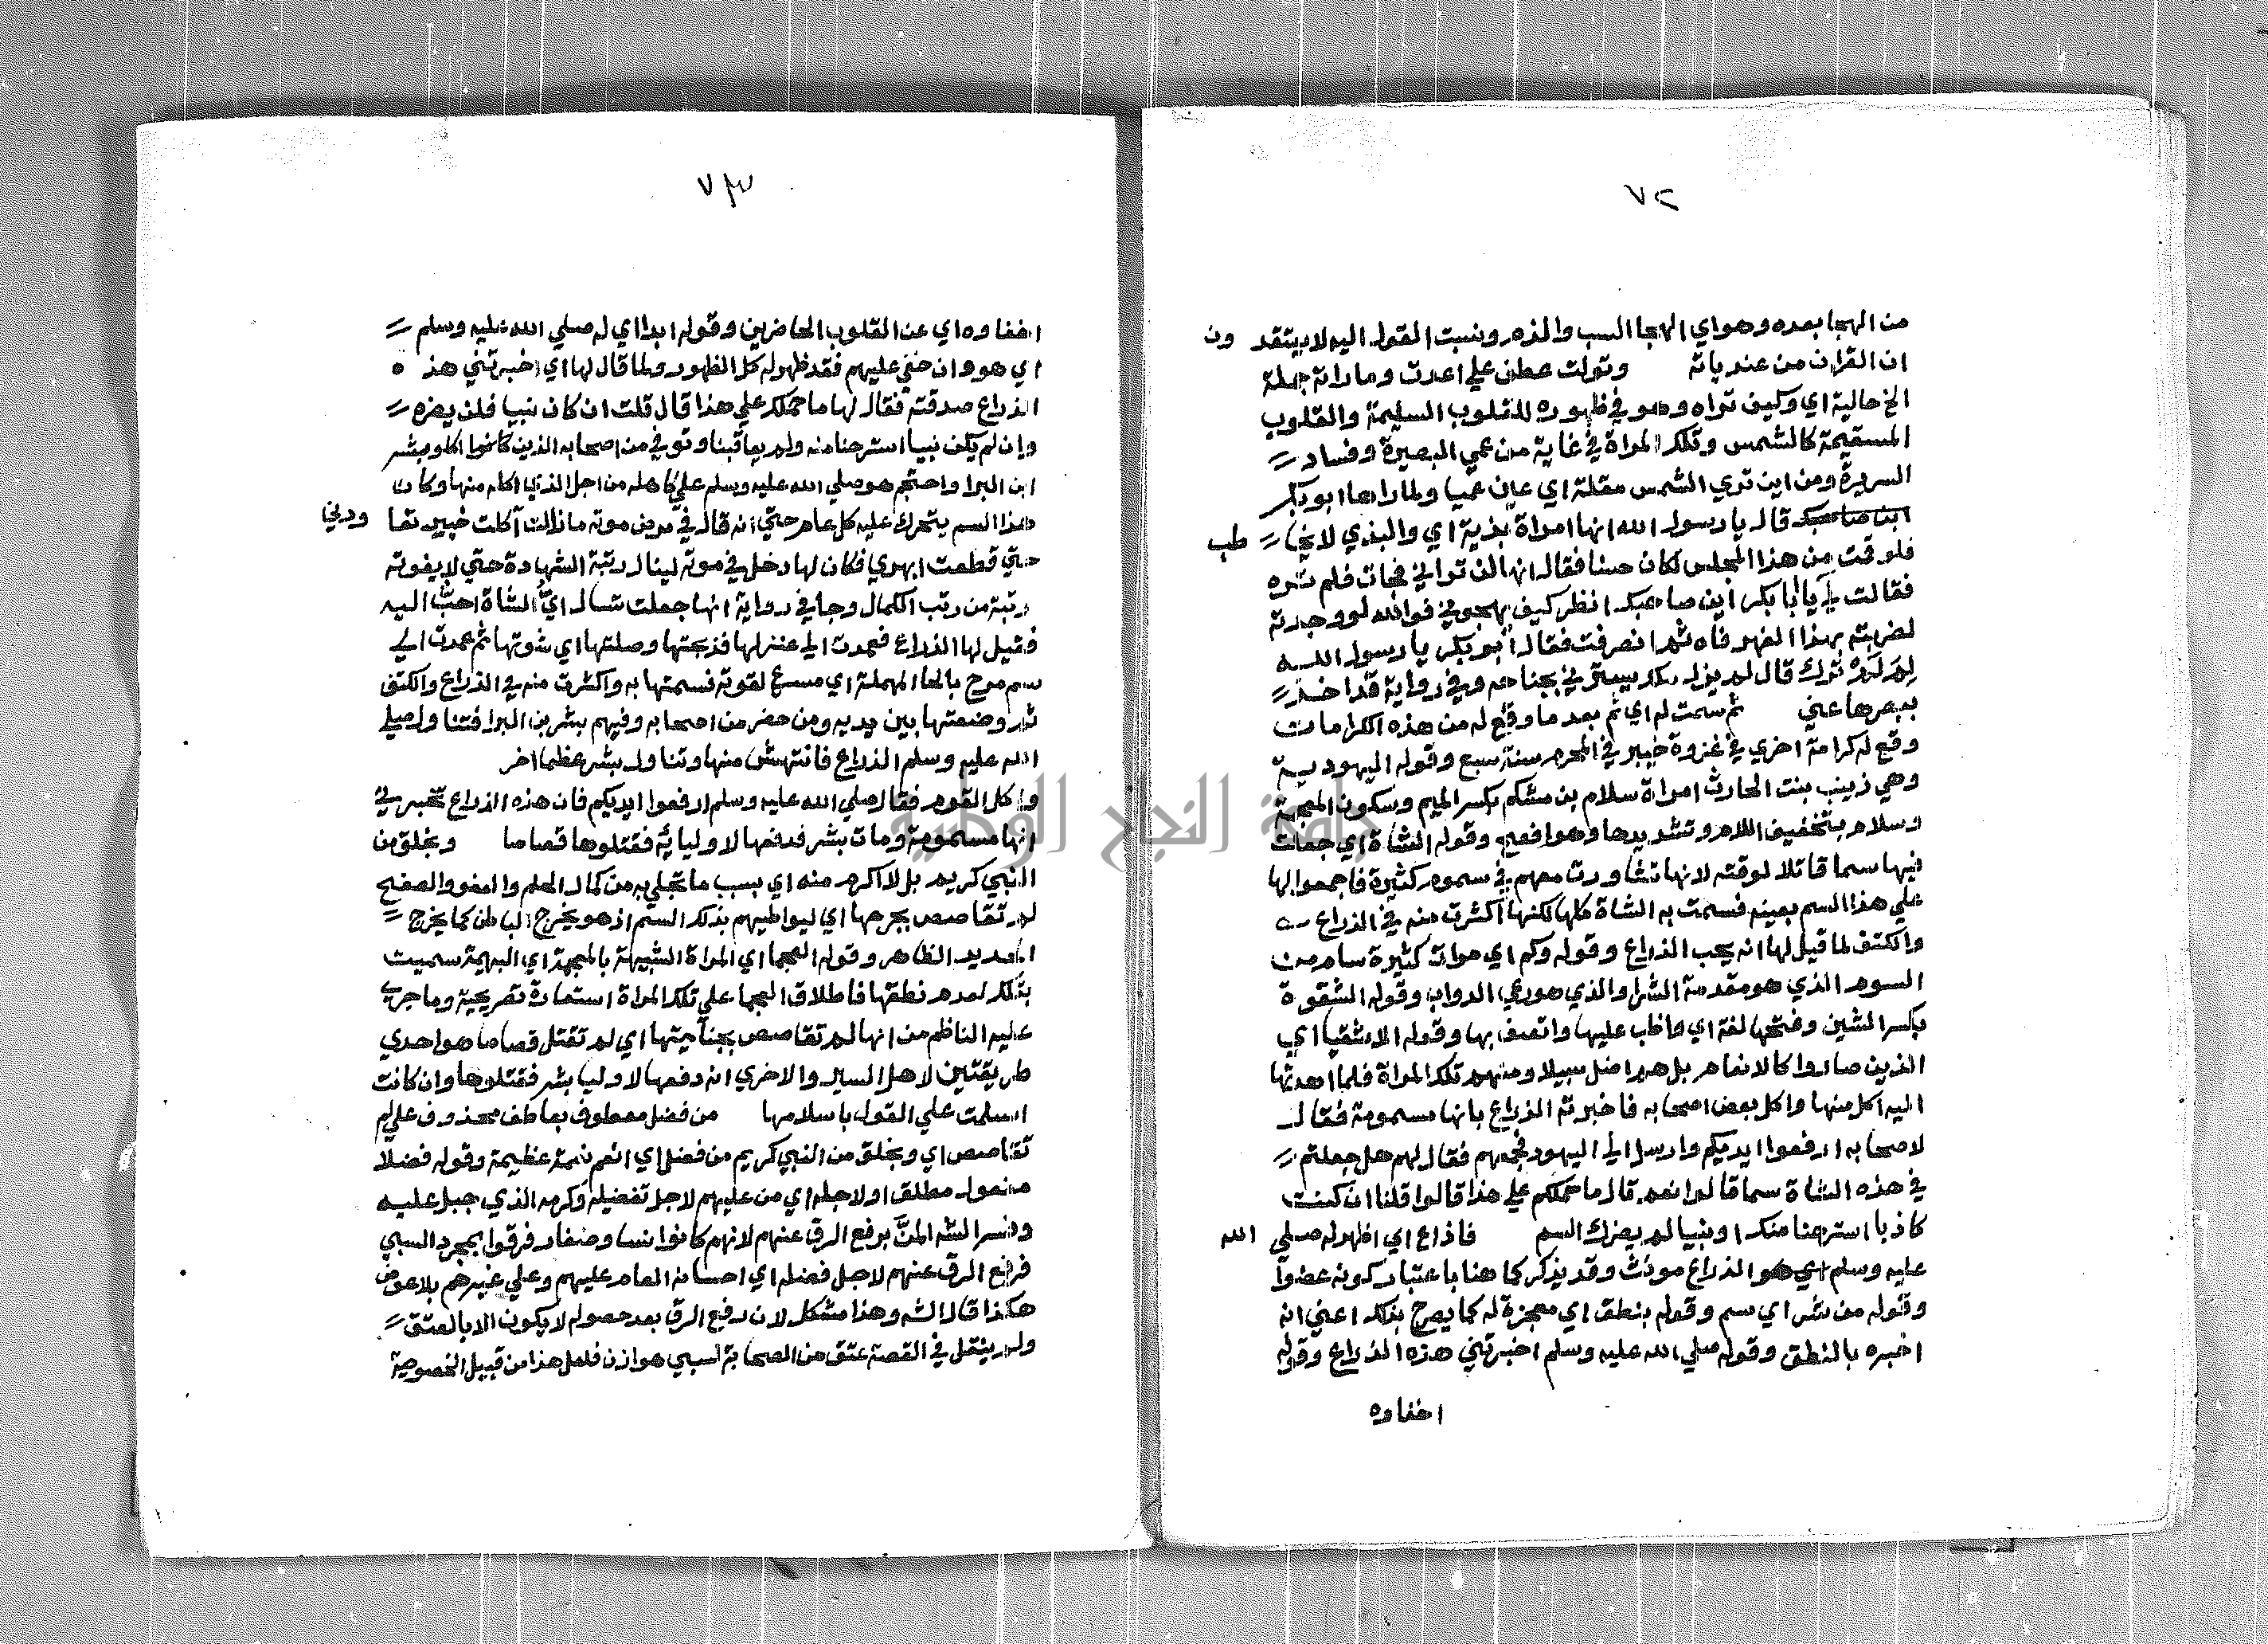 ٧٢
من الهجا بعده وهو اي الهجا السب والذم ونسبت القول اليه لا يتقد ون
ان القران من عند بانه وتولت عطف علي اعدت وما رانه جملة
الخ حالية اي وكيف تراه وهو في ظهوره للقلوب السليمة والقلوب
المستقيمة كالشمس وتلك المراة في غاية من عمي البصيرة وفساد
السريرة ومن اين تري الشمس مقلة اي عين عميا ولما راها ابو بكر
قال يا رسول الله انها امراة بذية اي والبذي لا يخا طب
فلو قمت من هذا المجلس كان حسنا فقال انها لن تراني فجات فلم تره
فقالت يا ابا بكر أين صاحبك انظر كيف يهجوني فوالله لو وجدته
لضربته بهذا الفهر فاه ثم انصرفت فقال ابو بكر يا رسول الله
لم لم ترك قال لم يزل ملك يسترني بجناحه وفي رواية قد اخذ
ببصرها عني ثم سمت له اي ثم بعد ما وقع له من هذه الكرامات
وقع له كرامة اخري في غزوة خيبر في المحرم سنة سبع وقوله اليهودية
وهي زينب بنت الحارث امراة سلام بن مشكم بكسر الميم وسكون المعجمة
وسلام بتخفيف اللام وتشديدها وهو افصح وقوله الشاة اي جعلت
فيها سما قاتلا لوقته لانها تشاورت معهم في سموم كثيرة فاجمعوا لها
علي هذا السم بعينه فسمت به الشاة كلها لكنها اكثرت منه في الذراع
والكتف لما قيل لها انه يحب الذراع وقوله وكم اي مرات كثيرة سام من
السوم الذي هو مقدمة الشرا والذي هو رعي الدواب وقوله الشقوة
بكسر الشين وفتحها لغة اي واظب عليها واتصف بها وقوله الاشقيا اي
الذين صاروا كالانعام بل هم اضل سبيلا ومنهم تلك المراة فلما اهدتها
اليه اكل منها واكل بعض اصحابه فاخبرته الذراع بانها مسمومة فقال
لاصحابه ارفعوا ايديكم وارسل الي اليهود فجمعهم فقال لهم هل جعلتم
في هذه الشاة سما قالوا نعم قال ما حملكم علي هذا قالوا قلنا ان كنت
كاذبا استرحنا منك او نبيا لم يضرك السم فاذاع اي اظهر له صلي الله
عليه وسلم اي هو الذراع مونث وقد يذكر كما هنا باعتبار كونه عضوا
وقوله من شر اي سم وقوله بنطق اي معجزة له كما يصرح بذلك اعني انه
اخبره بالنطق وقوله صلي الله عليه وسلم اخبرتني هذه الذراع وقوله
اخفاوه
٧٣
اخفاوه اي عن القلوب الحاضرين وقوله ابدا اي له صلي الله عليه وسلم
اي هو وان خفي عليهم فقد ظهر له كل الظهور ولما قال لها اي اخبرتني هذه
الذراع صدقته فقال لها ما حملك علي هذا قال قلت ان كان نبيا فلن يضره
وان لم يكن نبيا استرحنا منه ولم يعاقبنا وتوفي من اصحابه الذين كانوا اكلو بشر
ابن البرا واحتجم هو صلي الله عليه وسلم علي كاهله من اجل الذي اكله منها وكان
هذا السم يتحرك عليه كل عام حتي انه قال في مرض موته ما زالت آكلت خيبر تعا ودني
حتي قطعت ابهري فكان لها دخل في موته لينال رتبة الشهادة حتي لا يفوته
رتبة من رتب الكمال وجا في رواية انها جعلت تسال ايُّ الشاة احبُّ اليه
فقيل لها الذراع فعمدت الي عنز لها فذبحتها وصلتها اي شوتها ثم عمدت الي
سم موح بالحا المهملة اي مسرع لقوته فسمتها به واكثرت منه في الذراع والكتف
ثم وضعتها بين يديه ومن حضر من اصحابه وفيهم بشر بن البرا فتناول صلي
الله عليه وسلم الذراع فانتهش منها وتناول بشر عظما اخر
واكل القوم فقال صلي الله عليه وسلم ارفعوا ايديكم فان هذه الذراع تخبرني
انها مسمومة ومات بشر فدفعها لاوليائه فقتلوها قصاصا وبخلق من
النبي كريم بل لا اكرم منه اي بسبب ما تجلي به من كمال الحلم والعفو والصفح
لم تقاصص بجرحها اي ليواطيهم بذلك السم اذ هو يخرج الباطن كما يخرج
الحديد الظاهر وقوله العجما اي المراة الشبيهة بالمعجمة اي البهيمة سميت
بذلك لعدم نطقها فاطلاق العجما علي تلك المراة استعارة تصريحية وما جري
عليه الناظم من انها لم تقاصص بجنايتها اي لم تقتل قصاصا هو احدي
طريقتين لاهل السير والاخري انه دفعها لاوليا بشر فقتلوها وان كانت
اسلمت علي القول باسلامها من فضل معطوف بعاطف محذوف علي لم
تقاصص اي وبخلق من النبي كريم من فضل اي انعم نعمة عظيمة وقوله فضلا
مفعول مطلق او لاجله اي من عليهم لاجل تفضله وكرمه الذي جبل عليه
وفسر الشه المنَّ برفع الرق عنهم لانهم كانوا نسا وصغار فرقوا بمجرد السبي
فرفع الرق عنهم لاجل فضله اي احسانه العام عليهم وعلي غيرهم بلا عوض
هكذا قال الشه وهذا مشكل لان رفع الرق بعد حصوله لا يكون الا بالعتق
ولم ينقل في القصة عتق من الصحابة لسبي هوازن فلعل هذا من قبيل الخصوصية